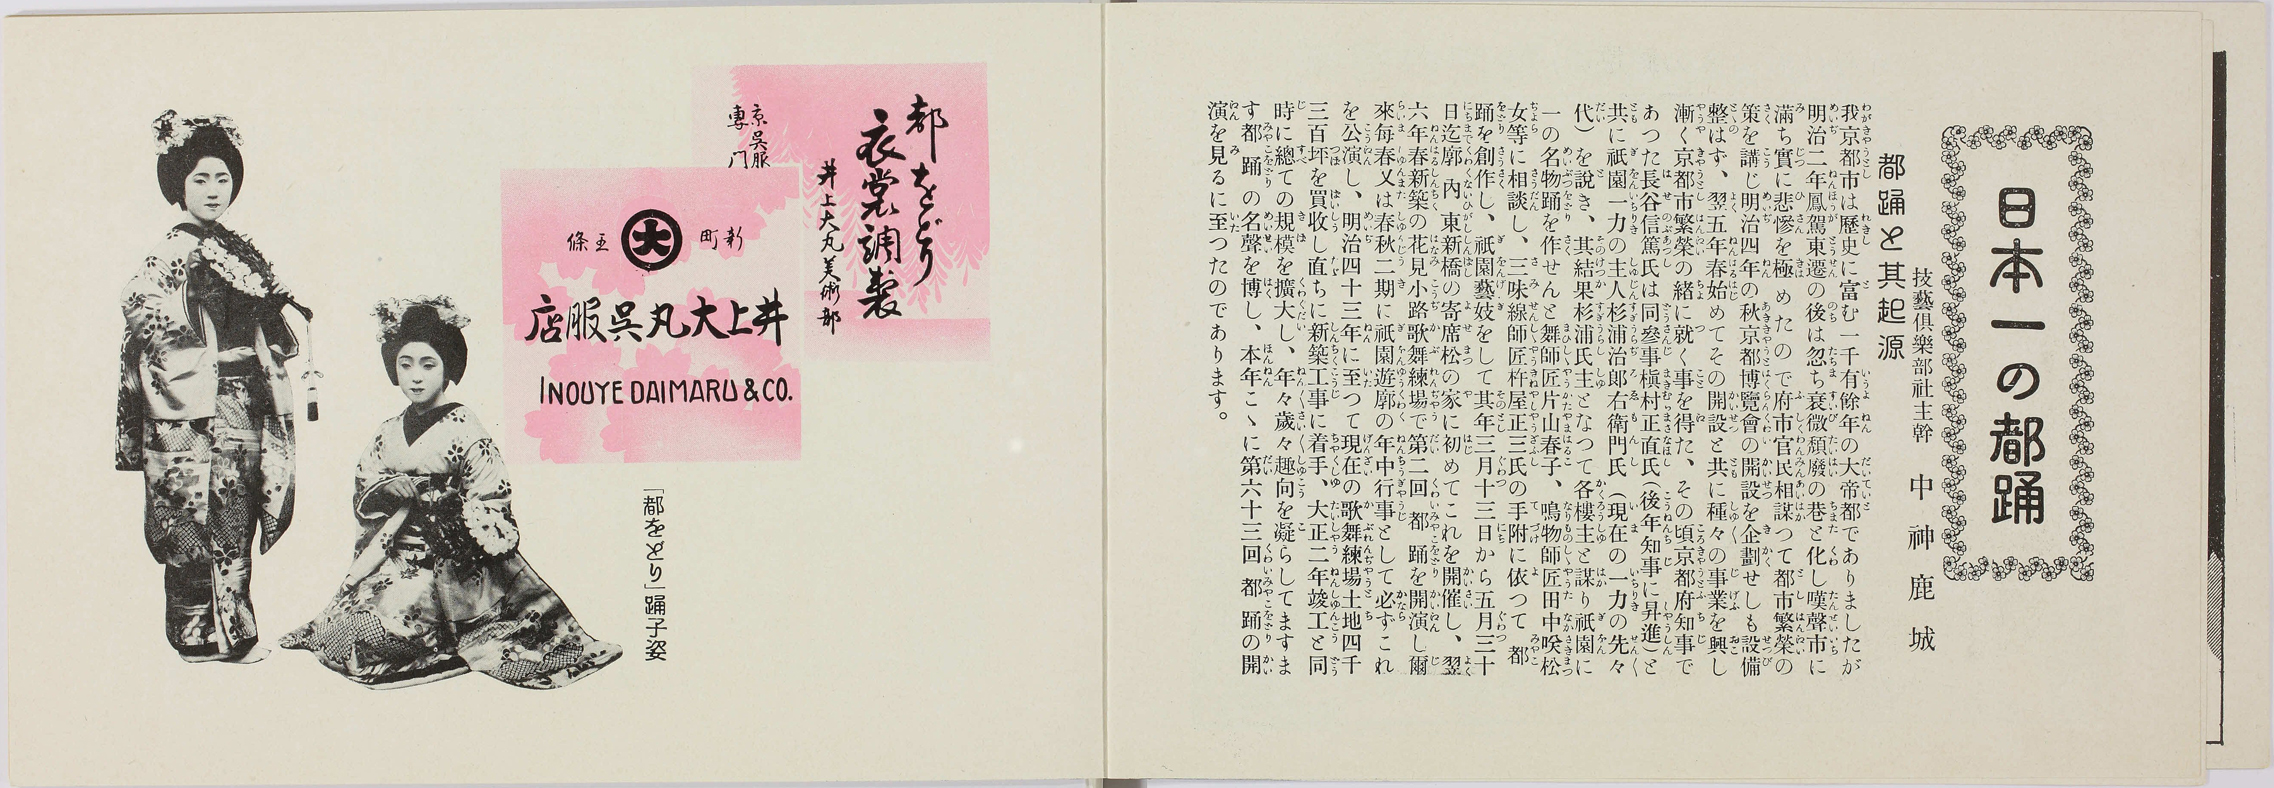 日本一の都踊
都踊と其起源
技藝倶樂部社主幹 中神鹿城
我京都市は歴史に富む一千有餘年の大帝都でありましたが
明治二年鳳駕東遷の後は忽ち衰微頽廢の巷と化し嘆聲市に
滿ち實に悲慘を極めたので府市官民相謀つて都市繁榮の
策を講じ明治四年の秋京都博覽會の開設を企劃せしも設備
整はず、翌五年春始めてその開設と共に種々の事業を興し
漸く京都市繁榮の緒に就く事を得た、その頃京都府知事で
あつた長谷信篤氏は同參事槇村正直氏(後年知事に昇進)と
共に祇園一力の主人杉浦治郎右衛門氏(現在の一力の先々
代)を説き、其結果杉浦氏主となつて各樓主と謀り祇園に
一の名物踊を作せんと舞師匠片山春子、鳴物師匠田中㗋松
女等に相談し、三味線師匠杵屋正三氏の手附に依つて都
踊を創作し、祇園藝妓をして其年三月十三日から五月三十
日迄廓内東新橋の寄席松の家に初めてこれを開催し、翌
六年春新築の花見小路歌舞練場で第二回都踊を開演し爾
來毎春又は春秋二期に祇園遊廓の年中行事として必ずこれ
を公演し、明治四十三年に至つて現在の歌舞練場土地四千
三百坪を買收し直ちに新築工事に着手、大正二年竣工と同
時に總ての規模を擴大し、年々歳々趣向を凝らしてますま
す都踊の名聲を博し、本年こゝに第六十三回都踊の開
演を見るに至つたのであります。
都をどり
衣裳調製
井上大丸美術部
京呉服
專門
新町
大
五條
井上大丸呉服店
INOUYE DAIMARU & CO.
「都をどり」踊子姿